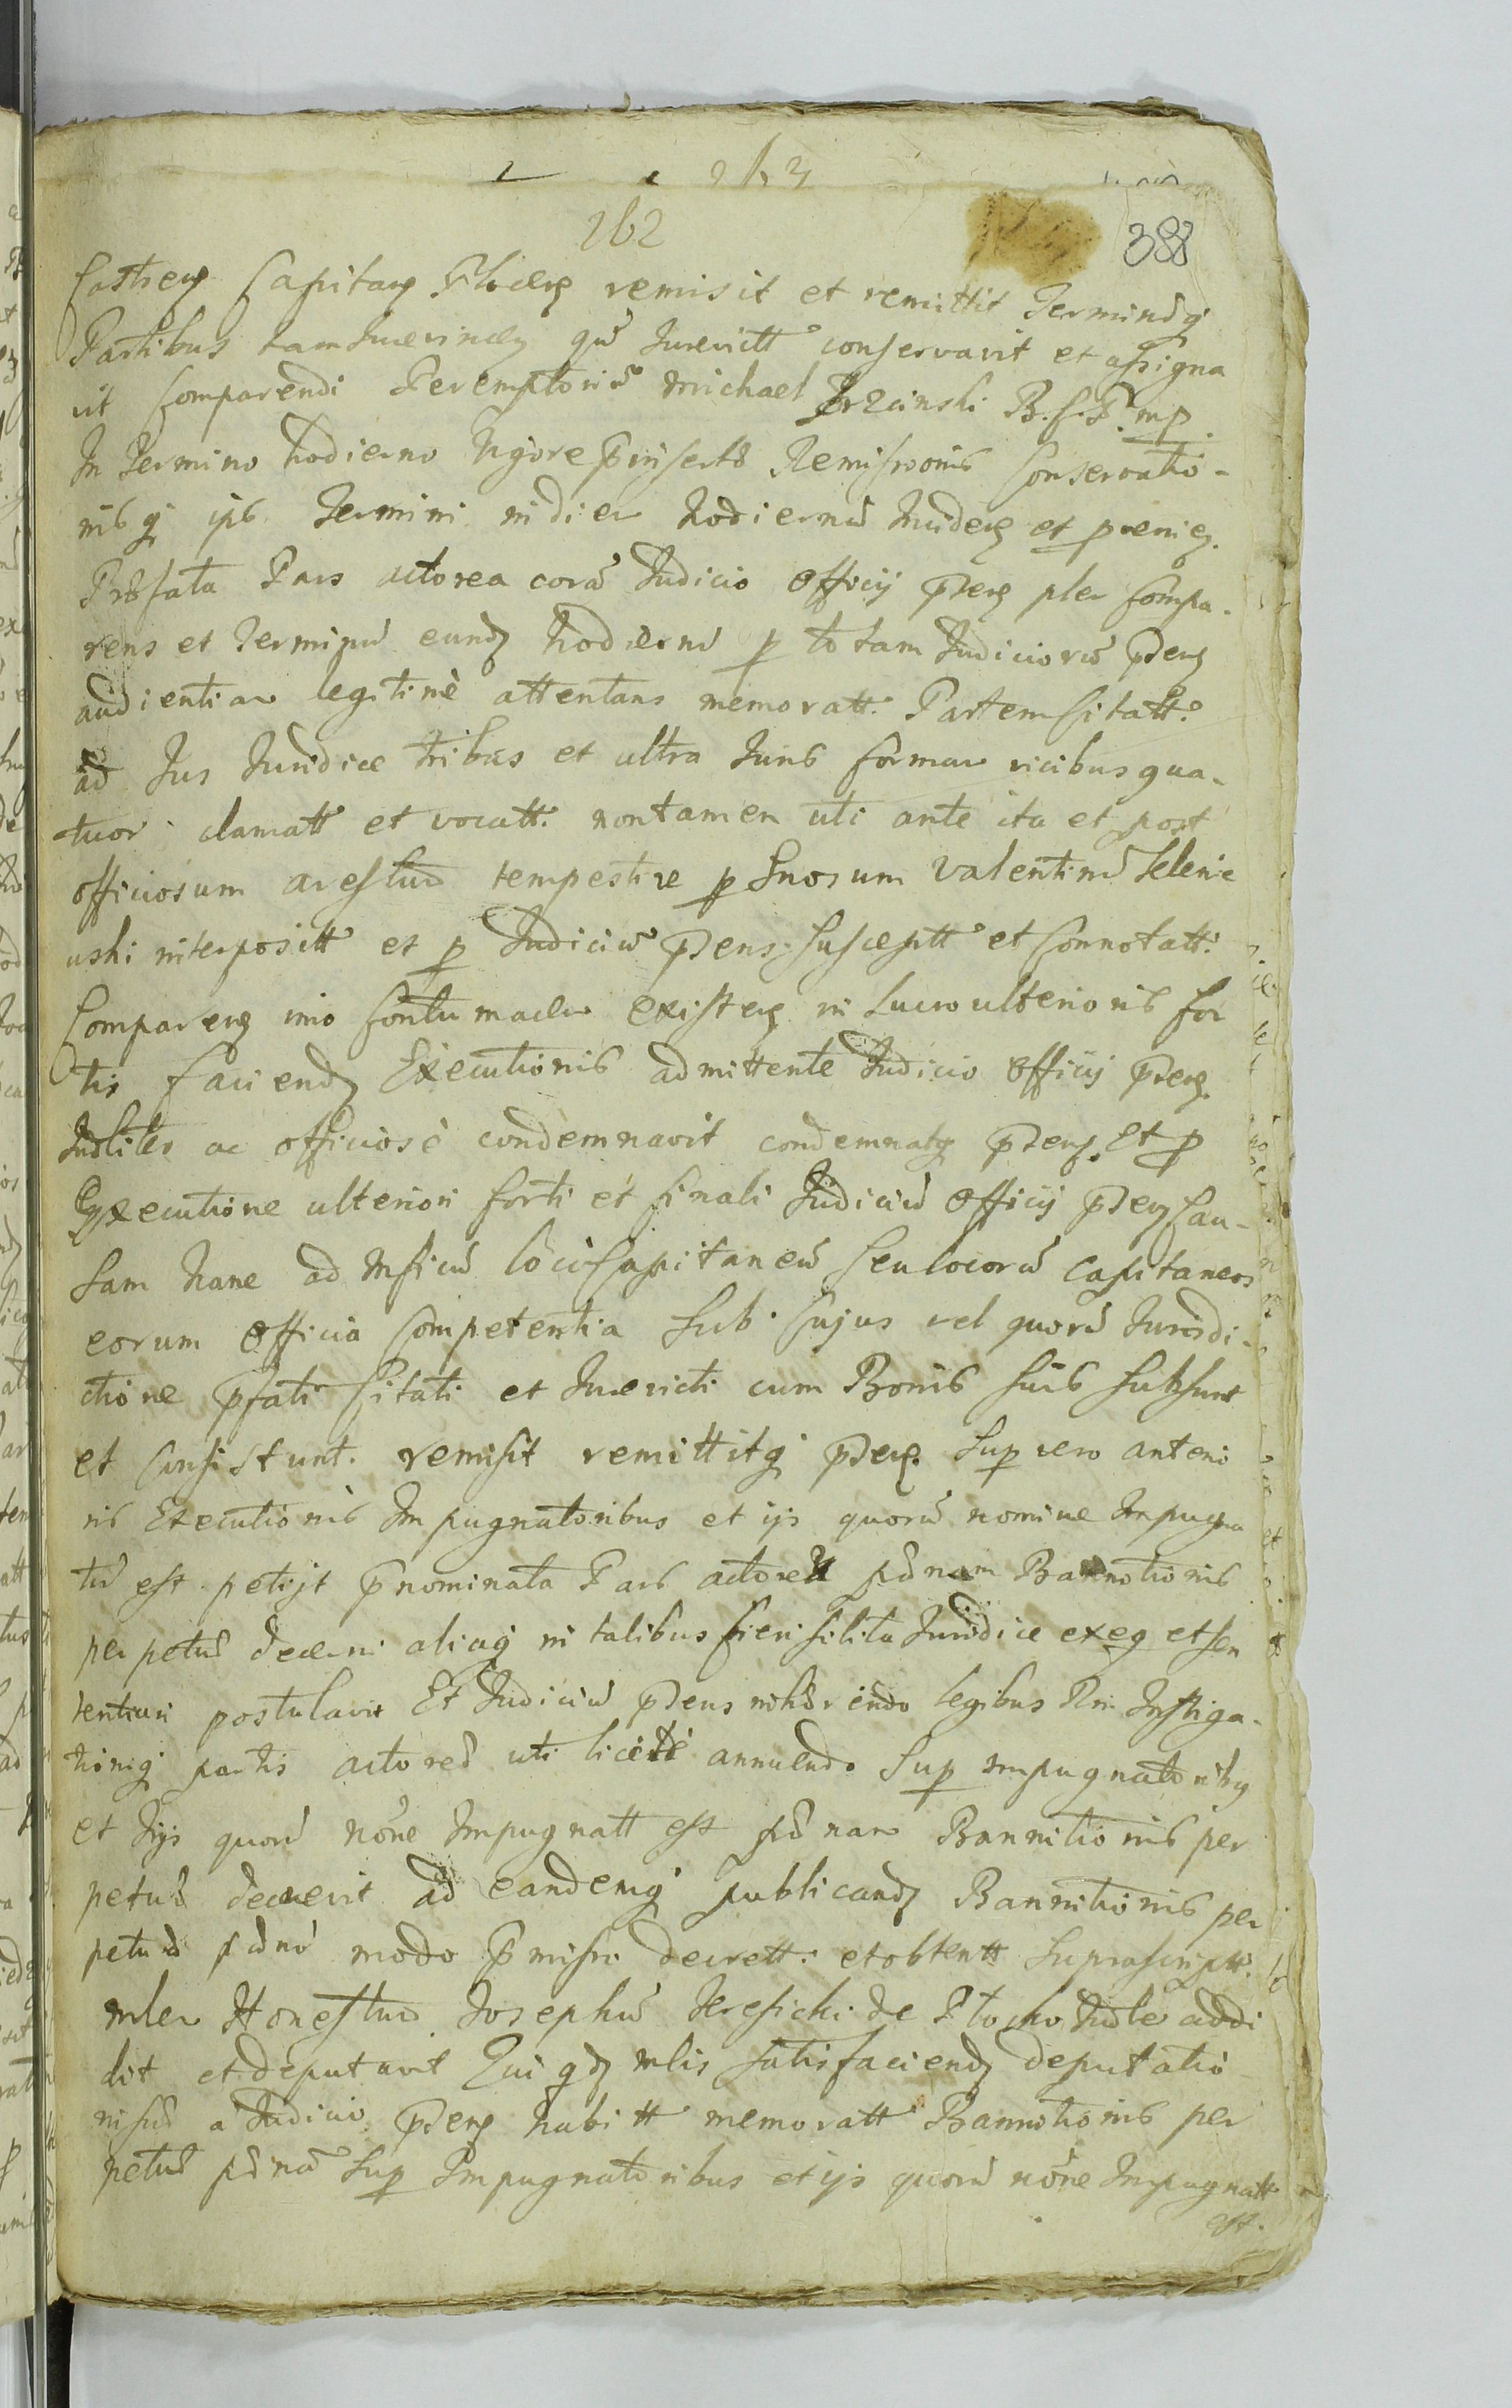 263
262
388
Castren Capitan Plocen remisit et remittit Terminũq
Partibus tam Juevincen quã Juevictt conservavit et assigna
vit Comparendi Peremptoriũ Michael Jrzcinski B. C. P. mp.
In Termino hodierno Vigore prinserta Remissionis Conservatio-
nisq ips Termini in diem hodiernũ inciden et provenien.
Præfata Pars actorea corã Judicio Officij pñten pler Compa-
rens et Terminũ eund hodiernũ p totam Judiciorũ pñten
audientiam legitimè attentans memoratt. Partem Citatt.
ad Jus Juridice tribus et ultra Juris formam vicibus qua-
tuor clamatt et vocatt. non tamen uti ante ita et post
officiosum arestũ tempestive p Gnosum Valentinũ Selenie
wski interpositt et p Judiciũ pñtens susceptt et Connotatt.
Comparen imo Contumacem existen in Lucro ulterioris for
tis faciend Executionis admittente Judicio Officij pñten
Judliter ac officiosè condemnavit condemnatq pñten. Et p
Executione ulteriori forti et finali Judiciũ Officij pñten Cau-
sam hanc ad Mficũ loci Capitaneũ seu locorũ Capitaneos
eorum Officia Competentia sub Cujus vel quorũ Jurisdi-
ctione pfati Citati et Juevicti cum Bonis suis subsunt
et consistunt. remisit remittitq pñten. Sup vero anterio
ris Executionis Impugnatoribus et ijs quorũ nomine Impugna
tũ est petijt pnominata Pars actorea pænam Bannitionis
perpetuæ decerni aliaq in talibus fieri solita Juridice exeq et sen
tentiari postulavit Et Judiciũ pñtens inhærendo legibus Rni Instiga-
tioniq partis actoreæ uti licitè annuendo Sup Impugnatoribq
et Iijs quorũ nõne Impugnatt est pænam Bannitionis per
petuæ decrevit ad eandemq publicand Bannitionis per
petuæ pænã modo pmisso decrett. et obtentt suprascriptt.
mlem Honestum Josephũ Teresicki de Plocko Judle addi
dit et deputavit Qui qd mlis satisfaciend deputatio
ni suæ a Judicio pñten habitt memoratt Bannitionis per
petuæ pænã Sup Impugnatoribus et ijs quorũ nõne Impugnatt
est.